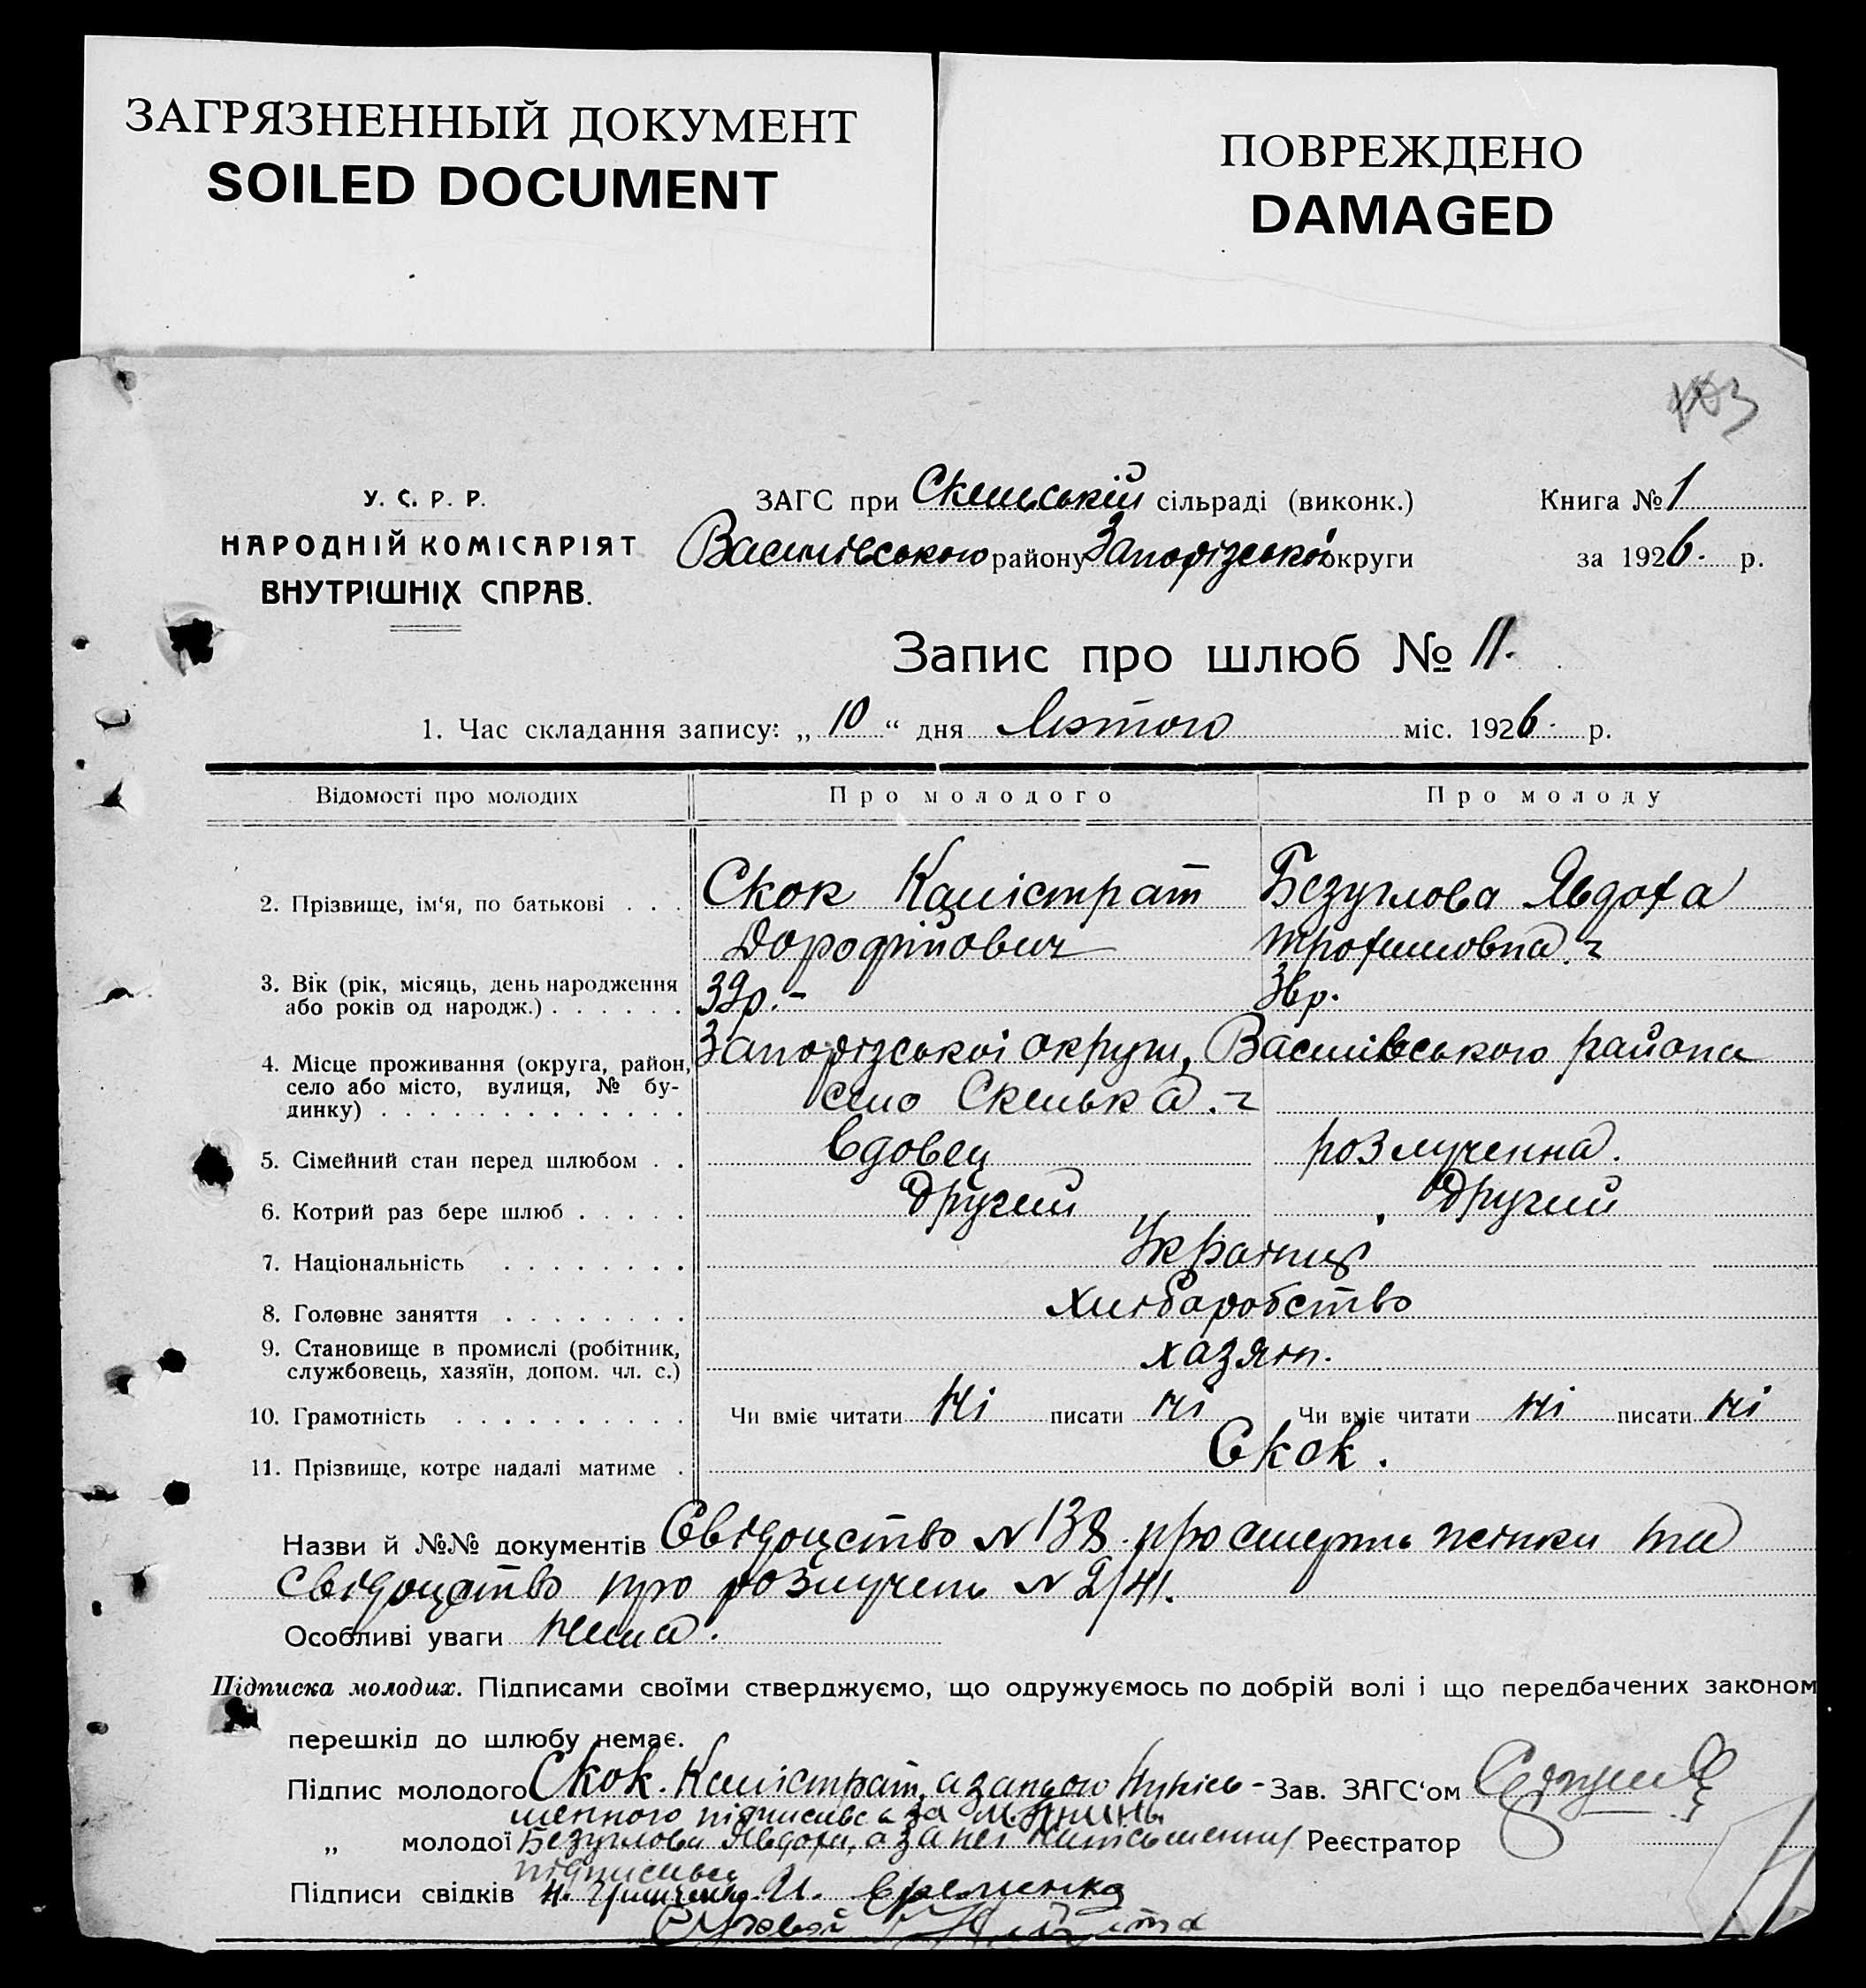 ЗАГРЯЗНЕННЫЙ ДОКУМЕНТ
SOILED DOCUMENT
ПОВРЕЖДЕНО
DAMAGED
У. С. Р. Р.
НАРОДНІЙ КОМІСАРІЯТ
ВНУТРІШНІХ СПРАВ.
ЗАГС при Скельській сільраді (виконк.)
Василівського району Запорізської округи
Книга № 1
за 1926. р.
Запис про шлюб № 11.
1. Час складання запису: „ 10 “ дня Лютого міс. 1926. р.
Відомості про молодих Про молодого Про молоду
2. Прізвище, ім‘я, по батькові . . . Скок Калістрат Безуглова Явдоха
Дорофійович Трохимовна.
3. Вік (рік, місяць, день народження
або років од народж.) . . . . . . 39р. - 36р.
4. Місце проживання (округа, район, Запорізської округи, Василівського района
село або місто, вулиця, № бу- село Скелька.
динку) . . . . . . . . . . . . .
5. Сімейний стан перед шлюбом . . вдовец розлученна.
6. Котрий раз бере шлюб . . . . . Другий Другий
7. Національність . . . . . . . . Українці
8. Головне заняття . . . . . . . . хліборобство
9. Становище в промислі (робітник,
службовець, хазяїн, допом. чл. с.) хазяїн.
10. Грамотність . . . . . . . . . . Чи вміє читати ні писати ні Чи вміє читати ні писати ні
11. Прізвище, котре надалі матиме . Скок.
Назви й №№ документів Свідоцство N 138 про смерть жінки та
свідоцство про розлучень N 2/41.
Особливі уваги нема.
Підписка молодих. Підписами своїми стверджуємо, що одружуємось по добрій волі і що передбачених законом
перешкід до шлюбу немає.
Підпис молодого Скок. Калістрат, а за Зав. ЗАГС‘ом
менного підписивсь за
„ молодої Безуглова Явдоха, а за неї Реєстратор
підписивсь
Підписи свідків И. Єременко